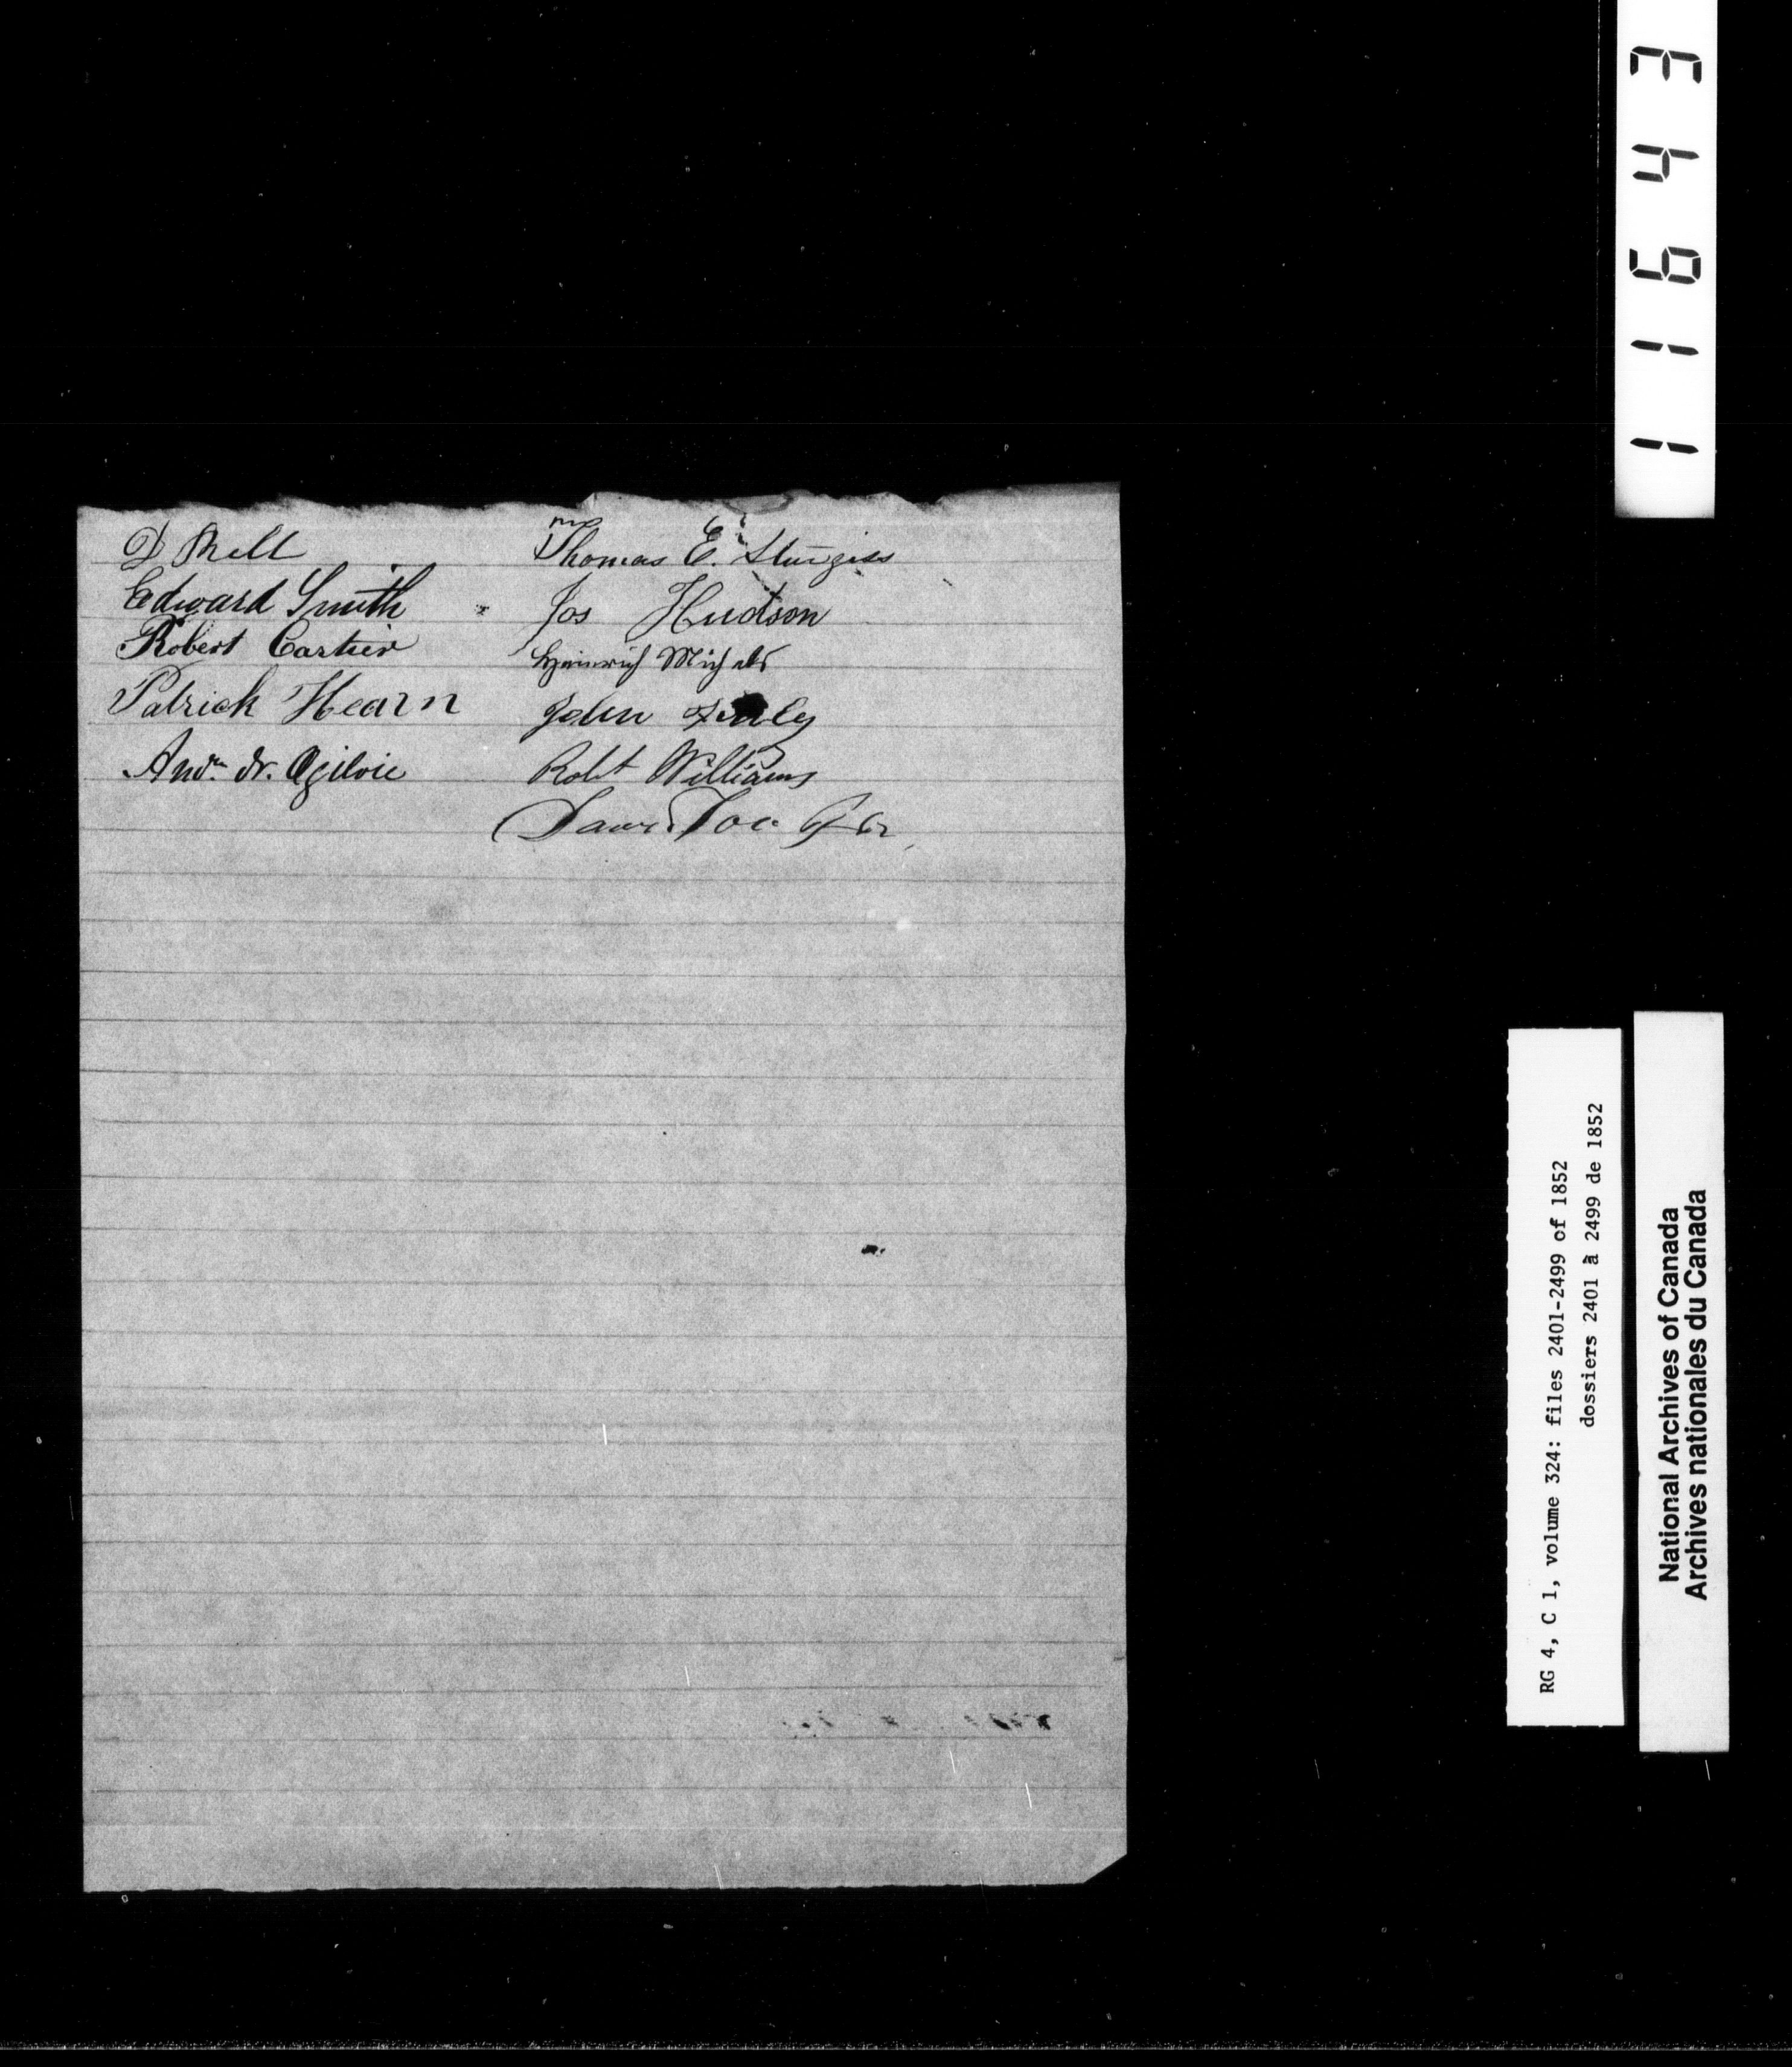 D Shell
Edward Smith
Robert Cartier
Patrick Hearn
And.w Dr. Ogilvie
Thomas E. Sturgiss
Jos Hudson
Heinrich Michels
John
Robt Williams
11643
RG 4, C 1, volume 324: files 2401-2499 of 1852
dossiers 2401 à 2499 de 1852
National Archives of Canada
Archives nationales du Canada